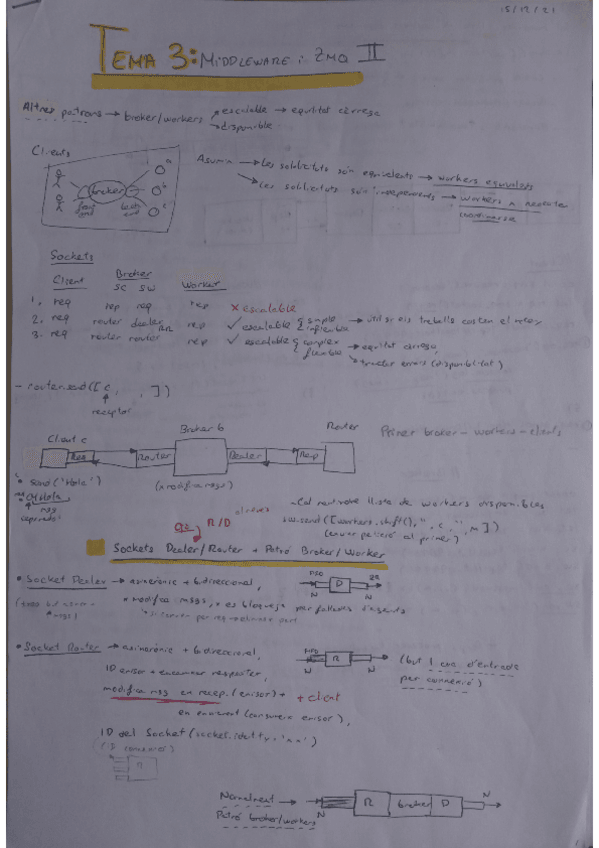 15/12/21
TEMA 3: MIDDLEWARE: ZMQ II
Altres patrons → broker/workers → escalable → equilibrat càrrega
→ disponible
Clients
broker
front end
back end
a
b
c
Assumim → Les sol·licituds són equivalents → workers equivalents
→ Les sol·licituds són independents → workers
Sockets
Client Broker Worker
SC SW
1. req rep req rep × escalable
2. req router dealer rep ✓ escalable simple inflexible → útil si els treballs costen el mateix
RR
3. req router router rep ✓ escalable complex flexible → equitat càrrega,
→ tractar errors (disponibilitat)
- router.send([c, , ])
receptor
Client c Broker b Router
Primer broker - workers - clients
Req Router Dealer Rep
• send('Hola') (x modifica msgs)
msg
R/D
- Cal mantindre llista de workers disponibles
sw.send([workers.shift(),'', c, '', m])
(enviar petició al primer)
Sockets Dealer/Router + Patró Broker/Worker
• Socket Dealer → asíncronic + bidireccional,
x modifica msgs, x es bloqueja per fallades d'agents
FIFO D RR
N N
• Socket Router → asíncronic + bidireccional,
ID emisor + encaminar respostes,
modifica msg en recep. (emisor) + + client
en enviament (consumeix emisor),
ID del Socket (socket.identity = 'xx')
(ID connexió)
R
FIFO R
N N
(but 1 cua d'entrada
per connexió)
Normalment →
Patró broker/workers
N R broker D N